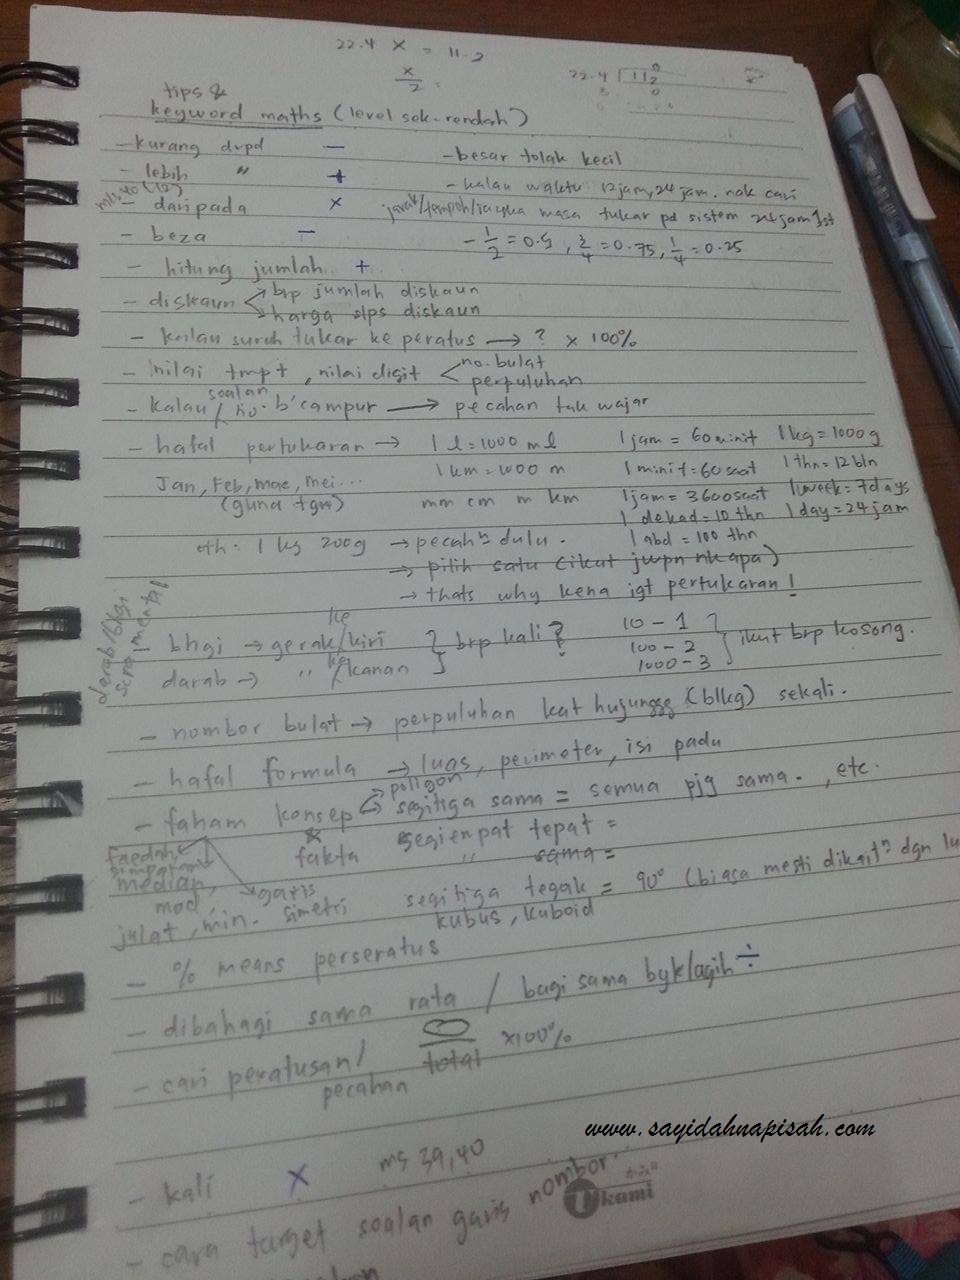 22.4 x = 11.2
x/2 =
22.4 112
tips &
keyword maths (level sek. rendah)
- kurang drpd −
- besar tolak kecil
- lebih " +
- kalau waktu 12jam, 24 jam. nak cari
ms 40 (12)
- daripada x
jarak/tempoh/jangka masa tukar pd sistem 24 jam 1st
- beza −
- 1/2 = 0.5, 3/4 = 0.75, 1/4 = 0.25
- hitung jumlah +
- diskaun brp jumlah diskaun
harga slps diskaun
- kalau suruh tukar ke peratus → ? x 100%
- nilai tmpt, nilai digit no. bulat
perpuluhan
- kalau soalan / no. b'campur → pecahan tak wajar
- hafal pertukaran → 1 l = 1000 ml 1 jam = 60 minit 1 kg = 1000 g
1 km = 1000 m 1 minit = 60 saat 1 thn = 12 bln
Jan, Feb, mac, mei...
(guna tgn) mm cm m km 1 jam = 3600 saat 1 week = 7 days
1 dekad = 10 thn 1 day = 24 jam
cth: 1 kg 200g → pecahⁿ dulu. 1 abd = 100 thn
→ pilih satu (ikut jwpn nk apa)
→ thats why kena igt pertukaran!
darab/bhgi
bhgi → gerak ke/kiri } brp kali? 10 - 1
darab → " ke/kanan 100 - 2 } ikut brp kosong.
1000 - 3
- nombor bulat → perpuluhan kat hujung (blkg) sekali.
- hafal formula → luas, perimeter, isi padu
- faham konsep poligon
segitiga sama = semua pjg sama., etc.
fakta segiempat tepat =
" sama =
faedah
median,
mod,
julat, min.
garis
simetri
segitiga tegak = 90° (biasa mesti dikaitⁿ dgn
kubus, kuboid
- % means perseratus
- dibahagi sama rata / bagi sama byk/agih ÷
- cari peratusan/
pecahan
total x100%
www.sayidahnapisah.com
- kali x ms 39,40
- cara target soalan garis nombor.
Ukami